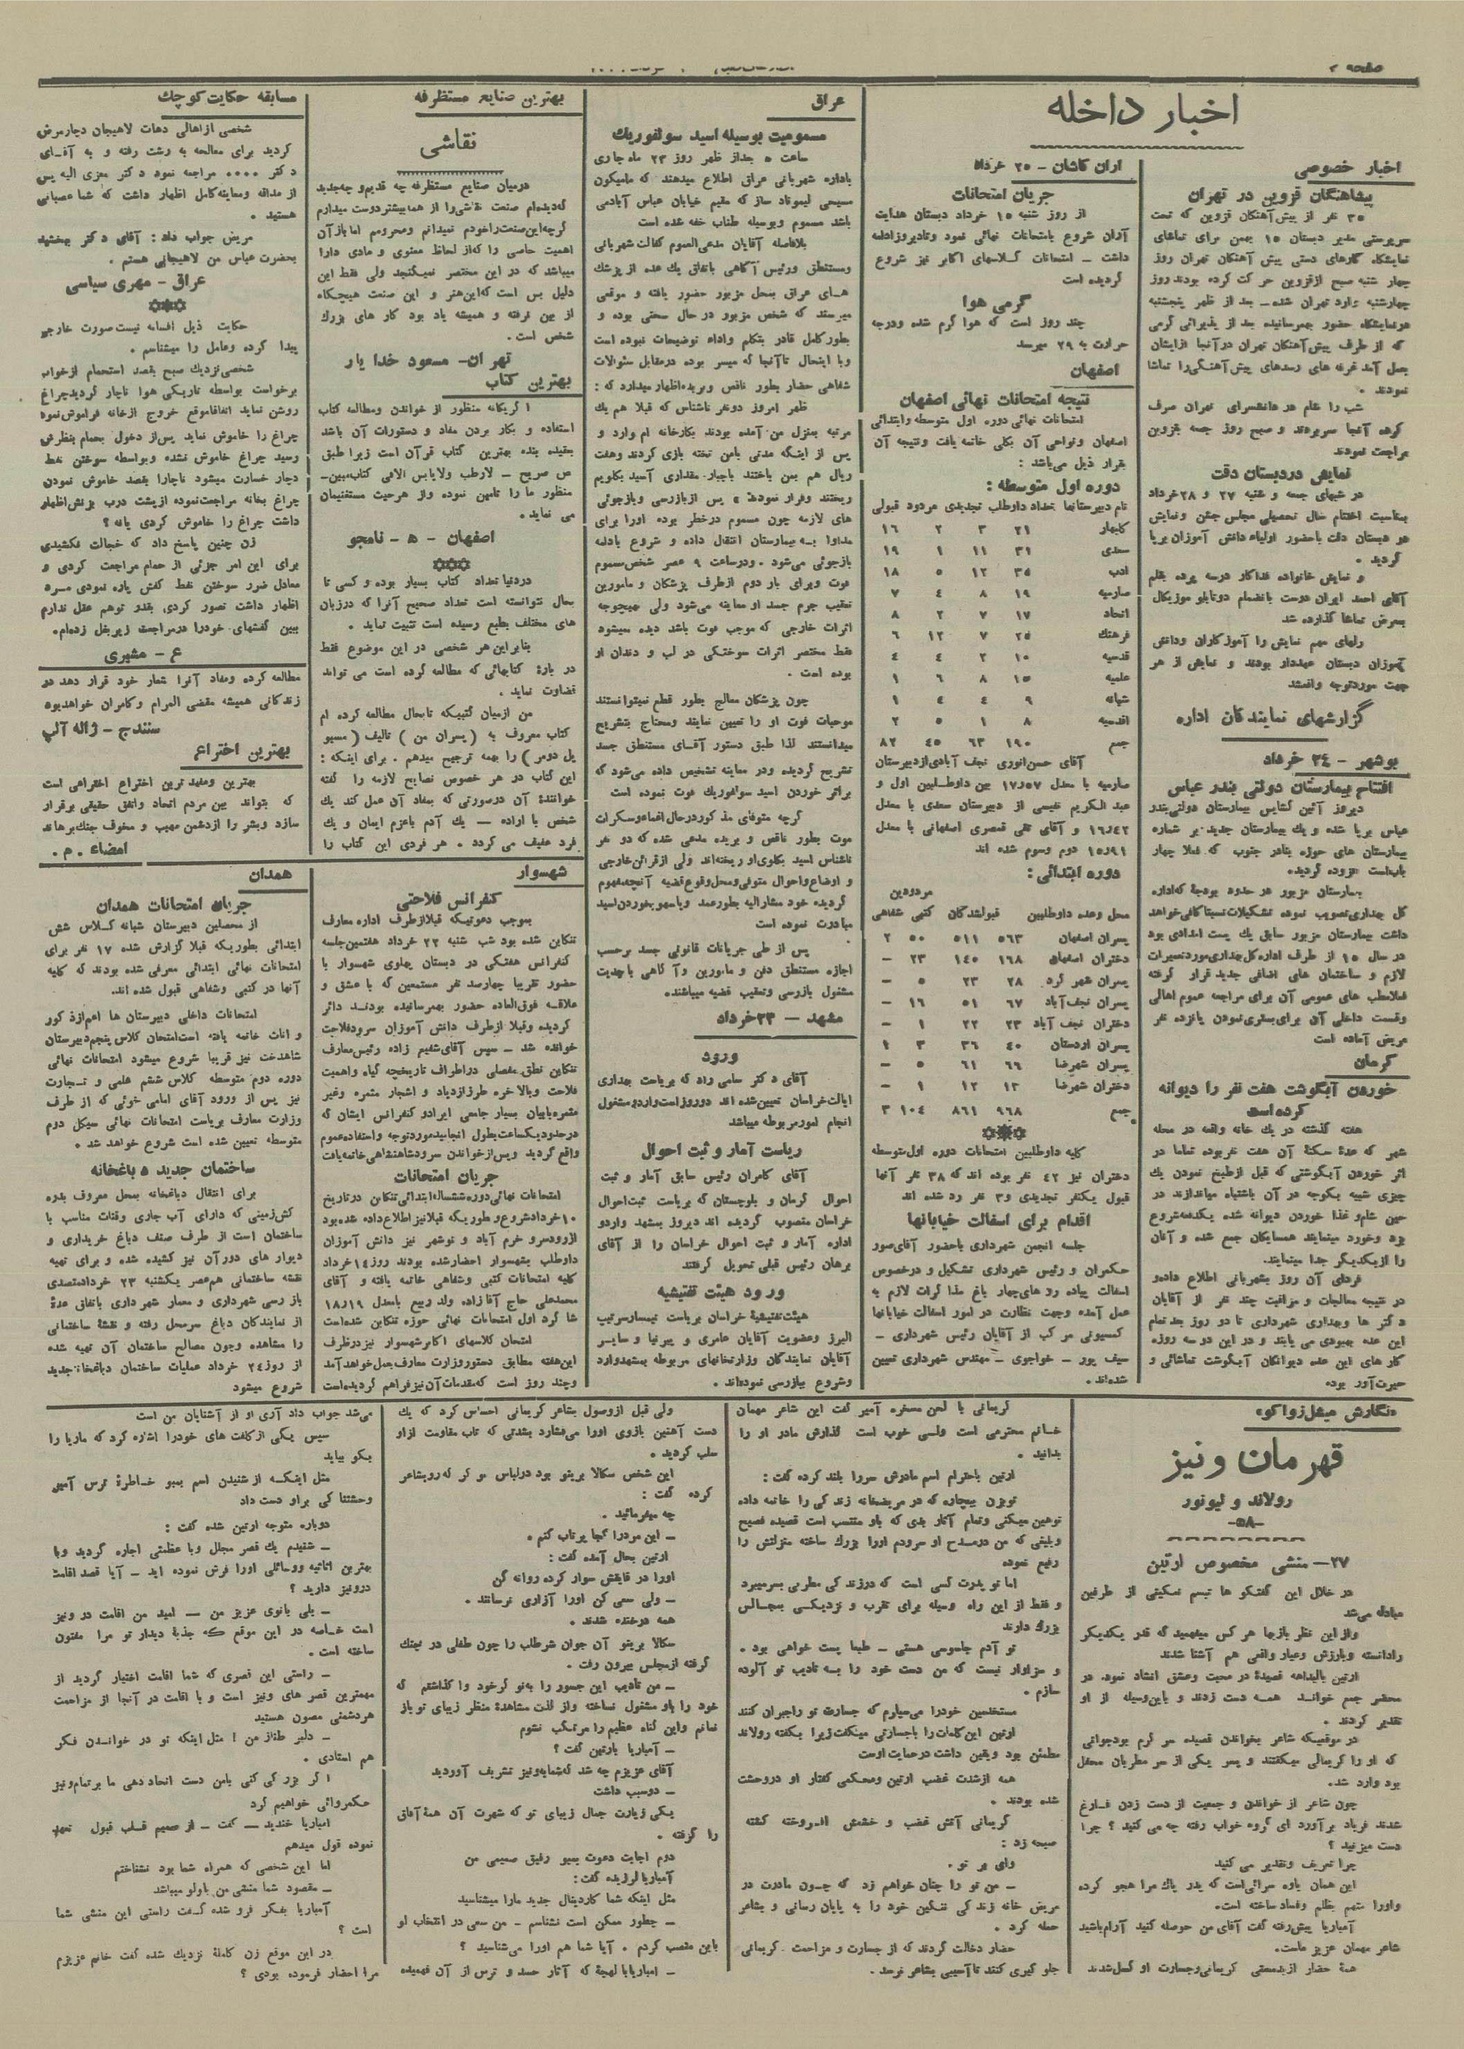 صفحه ۲
اخبار داخله
اخبار خصوصی
پیشاهنگان قزوین در تهران
۳۵ نفر از پیش‌آهنگان قزوین که تحت
سرپرستی مدیر دبستان ۱۵ بهمن برای تماشای
نمایشگاه کارهای دستی پیش آهنگان تهران روز
چهار شنبه صبح ازقزوین حرکت کرده بودند روز
چهارشنبه وارد تهران شده ـ بعد از ظهر پنجشنبه
درنمایشگاه حضور بهمرسانیده بعد از پذیرائی گرمی
که از طرف پیش‌آهنگان تهران درآنجا ازایشان
بعمل آمد غرفه های رسدهای پیش آهنگی‌را تماشا
نمودند .
شب را شام در دانشسرای تهران صرف
کرده آنجا سربردند و صبح روز جمعه بقزوین
مراجعت نمودند
نمایش دردبستان دقت
در شبهای جمعه و شنبه ۲۷ و ۲۸خرداد
بمناسبت اختتام سال تحصیلی مجلس جشن ونمایش
در دبستان دقت باحضور اولیاء دانش آموزان برپا
گردید .
و نمایش خانواده فداکار درسه پرده بقلم
آقای احمد ایران دوست بانضمام دوتابلو موزیکال
بمعرض تماشا گذارده شد
رلهای مهم نمایش را آموزگاران ودانش
آموزان دبستان عهده‌دار بودند و نمایش از هر
جهت موردتوجه واقعشد
گزارشهای نمایندگان اداره
بوشهر - ۲۴ خرداد
افتتاح بیمارستان دولتی بندر عباس
دیروز آئین گشایش بیمارستان دولتی‌بندر
عباس برپا شده و یك بیمارستان جدید بر شماره
بیمارستان های حوزه بنادر جنوب که فعلا چهار
باب‌است افزوده گردید.
بیمارستان مزبور در حدود بودجۀ که‌اداره
کل بهداری‌تصویب نموده تشکیلات نسبتاکافی‌خواهد
داشت بیمارستان مزبور سابق یك پست امدادی بود
در سال ۱۵ از طرف اداره‌کل‌بهداری‌موردتعمیرات
لازم و ساختمان های اضافی جدید قرار گرفته
فعلامطب های عمومی آن برای مراجعه عموم اهالی
وقسمت داخلی آن برای‌بستری‌نمودن پانزده نفر
مریض آماده است
کرمان
خوردن آبگوشت هفت نفر را دیوانه
کرده‌است
هفته گذشته در یك خانه واقعه در محله
شهر که عدۀ سکنۀ آن هفت نفربوده تماما در
اثر خوردن آبگوشتی که قبل ازطبخ نمودن یك
چیزی شبیه بکوجه در آن باشتباه میاندازند در
حین شام‌و غذا خوردن دیوانه شده یکدفعه‌شروع
بزد وخورد مینمایند همسایگان جمع شده و آنان
را ازیکدیگر جدا مینمایند.
فردای آن روز بشهربانی اطلاع داده‌و
در نتیجه معالجات و مراقبت چند نفر از آقایان
دکتر ها وبهداری شهرداری تا دو روز بعد تمام
این عده بهبودی می یابند و در این دو سه روزه
کار های این عده دیوانگان آبگوشت تماشائی و
حیرت‌آور بوده
اران کاشان - ۲۵ خرداد
جریان امتحانات
از روز شنبه ۱۵ خرداد دبستان هدایت
آران شروع بامتحانات نهائی نمود وتادیروزادامه
داشت - امتحانات کلاسهای اکابر نیز شروع
گردیده است
گرمی هوا
چند روز است که هوا گرم شده ودرجه
حرارت به ۲۹ میرسد
اصفهان
نتیجه امتحانات نهائی اصفهان
امتحانات نهائی دوره اول متوسطه وابتدائی
اصفهان ونواحی آن بکلی خاتمه یافت ونتیجه آن
بقرار ذیل می‌باشد :
دوره اول متوسطه :
نام دبیرستانها تعداد داوطلب تجدیدی مردود قبولی
گلبهار ۲۱ ۳ ۲ ۱۶
سعدی ۳۱ ۱۱ ۱ ۱۹
ادب ۳۵ ۱۲ ۵ ۱۸
صارمیه ۱۹ ۸ ۴ ۷
اتحاد ۱۷ ۷ ۲ ۸
فرهنك ۲۵ ۷ ۱۲ ۶
قدسیه ۱۰ ۲ ۴ ۴
علمیه ۱۵ ۸ ۶ ۱
شبانه ۹ ۴ ۴ ۱
اقدسیه ۸ ۱ ۵ ۲
جمع ۱۹۰ ۶۳ ۴۵ ۸۲
آقای حسن‌انوری نجف آبادی‌ازدبیرستان
صارمیه با معدل ۱۷ر۵۷ بین داوطلبین اول و
عبدالکریم نفیسی از دبیرستان سعدی با معدل
۱۶ر۴۲ و آقای تقی قمصری اصفهانی با معدل
۱۵ر۹۱ دوم وسوم شده اند
دوره ابتدائی :
مردودین
محل وعده داوطلبین قبولشدگان کتبی شفاهی
پسران اصفهان ۵۶۳ ۵۱۱ ۵۰ ۲
دختران اصفهان ۱۶۸ ۱۴۵ ۲۳ -
پسران شهر کرد ۲۸ ۲۳ ۵ -
پسران نجف‌آباد ۶۷ ۵۱ ۱۶ -
دختران نجف آباد ۲۳ ۲۲ ۱ -
پسران اردستان ۴۰ ۳۶ ۳ ۱
پسران شهرضا ۶۶ ۶۱ ۵ -
دختران شهرضا ۱۳ ۱۲ ۱ -
جمع ۹۶۸ ۸۶۱ ۱۰۴ ۳
کلیه داوطلبین امتحانات دوره اول‌متوسطه
دختران نیز ۴۲ نفر بوده اند که ۳۸ نفر آنها
قبول یکنفر تجدیدی و۳ نفر رد شده اند
اقدام برای اسفالت خیابانها
جلسه انجمن شهرداری باحضور آقای‌صور
حکمران و رئیس شهرداری تشکیل و درخصوص
اسفالت پیاده رو های‌چهار باغ مذاکرات لازم به
عمل آمده وجهت نظارت در امور اسفالت خیابانها
کمسیونی مرکب از آقایان رئیس شهرداری -
سیف پور - خواجوی - مهندس شهرداری تعیین
شده‌اند .
عراق
مسمومیت بوسیله اسید سولفوریك
ساعت ۵ بعداز ظهر روز ۲۳ ماه‌جاری
باداره شهربانی عراق اطلاع میدهند که مامیکون
مسیحی لیموناد ساز که مقیم خیابان عباس آبادمی
باشد مسموم وبوسیله طناب خفه شده است
بلافاصله آقایان مدعی‌العموم کفالت شهربانی
ومستنطق ورئیس آگاهی باتفاق یك عده ازپزشك
هـای عراق بمحل مزبور حضور یافته و موقعی
میرسند که شخص مزبور در حال سختی بوده و
بطورکامل قادر بتکلم واداء توضیحات نبوده است
وبا اینحال تاآنجا که میسر بوده درمقابل سئوالات
شفاهی حضار بطور ناقص وبریده‌اظهار میدارد که :
ظهر امروز دونفر ناشناس که قبلا هم یك
مرتبه بمنزل من آمده بودند بکارخانه ام وارد و
پس از اینکه مدتی بامن تخته بازی کردند وهفت
ریال هم بمن باختند باجبار مقداری اسید بگلویم
ریختند وفرار نمودند» پس ازبازرسی وبازجوئی
های لازمه چون مسموم درخطر بوده اورا برای
مداوا بـه بیمارستان انتقال داده و شروع بادامه
بازجوئی می‌شود . ودرساعت ۹ عصر شخص‌مسموم
فوت وبرای بار دوم ازطرف پزشکان و مامورین
تعقیب جرم جسد او معاینه می‌شود ولی هیچوجه
اثرات خارجی که موجب فوت باشد دیده نمیشود
فقط مختصر اثرات سوختگی در لب و دندان او
بوده است .
چون پزشکان معالج بطور قطع نمیتوانستند
موجبات فوت او را تعیین نمایند ومحتاج بتشریح
میدانستند لذا طبق دستور آقـای مستنطق جسد
تشریح گردیده ودر معاینه تشخیص داده می‌شود که
براثر خوردن اسید سولفوریك فوت نموده است
گرچه متوفای مذکوردرحال اغماءوسکرات
موت بطور ناقص و بریده مدعی شده که دو نفر
ناشناس اسید بگلوی‌او ریخته‌اند ولی ازقرائن‌خارجی
و اوضاع‌واحوال متوفی‌ومحل‌وقوع‌قضیه آنچه‌مفهوم
گردیده خود مشارالیه بطورعمد ویاسهوبخوردن‌اسید
مبادرت نموده است
پس از طی جریانات قانونی جسد برحسب
اجازه مستنطق دفن و مامورین وآگاهی باجدیت
مشغول بازرسی وتعقیب قضیه میباشند.
مشهد - ۲۳خرداد
ورود
آقای دکتر سامی راد که بریاست بهداری
ایالت‌خراسان تعیین‌شده اند دوروزاست‌واردومشغول
انجام امورمربوطه میباشد
ریاست آمار و ثبت احوال
آقای کامران رئیس سابق آمار و ثبت
احوال کرمان و بلوچستان که بریاست ثبت‌احوال
خراسان منصوب گردیده اند دیروز بمشهد واردو
اداره آمار و ثبت احوال خراسان را از آقای
برهان رئیس قبلی تحویل گرفتند
ورود هیئت تفتیشیه
هیئت‌تفتیشیۀ خراسان بریاست تیمسارسرتیپ
البرز وعضویت آقایان عامری و پیرنیا و سایـر
آقایان نمایندگان وزارتخانهای مربوطه بمشهدوارد
وشروع ببازرسی نموده‌اند.
بهترین صنایع مستظرفه
نقاشی
درمیان صنایع مستظرفه چه قدیم‌و چه‌جدید
که‌دیده‌ام صنعت نقاشی‌را ازهمه‌بیشتردوست میدارم
گرچه‌این‌صنعت‌راخودم نمیدانم ومحرومم امابازآن
اهمیت خاصی را که‌از لحاظ معنوی و مادی دارا
میباشد که در این مختصر نمیگنجد ولی فقط این
دلیل بس است که‌این‌هنر و این صنعت هیچگاه
از بین نرفته و همیشه یاد بود کار های بزرك
شخص است .
تهران- مسعود خدا یار
بهترین کتاب
اگریگانه منظور از خواندن ومطالعه کتاب
استفاده و بکار بردن مفاد و دستورات آن باشد
بعقیده بنده بهترین کتاب قرآن است زیرا طبق
نص صریح - لارطب ولایابس الافی کتاب‌مبین-
منظور ما را تامین نموده واز هرحیث مستغنیمان
می نماید .
اصفهان - ه - نامجو
دردنیا تعداد کتاب بسیار بوده و کسی تا
بحال نتوانسته است تعداد صحیح آنرا که درزبان
های مختلف بطبع رسیده است تثبیت نماید .
بنابراین‌هر شخصی در این موضوع فقط
در بارۀ کتابهائی که مطالعه کرده است می تواند
قضاوت نماید .
من ازمیان کتبیکه تابحال مطالعه کرده ام
کتاب معروف به ( پسران من ) تالیف (مسیو
پل دومر) را بهمه ترجیح میدهم . برای اینکه :
این کتاب در هر خصوص نصایح لازمه را گفته
خوانندۀ آن درصورتی که بمفاد آن عمل کند یك
شخص با اراده - یك آدم باعزم ایمان و یك
فرد عفیف می گردد . هر فردی این کتاب را
شهسوار
کنفرانس فلاحتی
بموجب دعوتیکه قبلاازطرف اداره معارف
تنکابن شده بود شب شنبه ۲۲ خرداد هفتمین‌جلسه
کنفرانس هفتگی در دبستان پهلوی شهسوار با
حضور تقریبا چهارصد نفر مستمعین که با عشق و
علاقـه فوق‌العاده حضور بهمرسانیده بودنـد دائر
گردیده وقبلا ازطرف دانش آموزان سرودفلاحت
خوانده شد - سپس آقای‌شفیع زاده رئیس‌معارف
تنکابن نطق‌مفصلی دراطراف تاریخچه گیاه واهمیت
فلاحت وبالاخره طرزازدیاد و اشجار مثمره وغیر
مثمره‌بابیان بسیار جامعی ایرادو کنفرانس ایشان که
درحدودیکساعت‌بطول انجامیدموردتوجه واستفاده‌عموم
واقع گردید وپس‌ازخواندن سرودشاهنشاهی‌خاتمه‌یافت
جریان امتحانات
امتحانات نهائی‌دوره‌ششساله‌ابتدائی‌تنکابن درتاریخ
۱۰خردادشروع و بطوریکه قبلانیزاطلاع‌داده شده‌بود
ازرودسرو خرم آباد و نوشهر نیز دانش آموزان
داوطلب بشهسوار احضارشده بودند روز۱۴خرداد
کلیه امتحانات کتبی وشفاهی خاتمه یافته و آقای
محمدعلی حاج آقازاده ولد ربیع بامعدل ۱۸ر۱۹
شاگرد اول امتحانات نهائی حوزه تنکابن شده‌است
امتحان کلاسهای اکابرشهسوار نیزدرظرف
این‌هفته مطابق دستوروزارت معارف‌بعمل‌خواهدآمد
وچند روز است که‌مقدمات‌آن‌نیزفراهم گردیده‌است
مسابقه حکایت کوچك
شخصی ازاهالی دهات لاهیجان دچارمرض
گردید برای معالجه به رشت رفته و به آقـای
دکتر ۰۰۰۰ مراجعه نمود دکتر معزی الیه پس
از مداقه ومعاینه‌کامل اظهار داشت که شما عصبانی
هستید .
مریض جواب داد : آقای دکتر ببخشید
بحضرت عباس من لاهیجانی هستم .
عراق - مهری سیاسی
حکایت ذیل افسانه نیست‌صورت خارجی
پیدا کرده وعامل را میشناسم .
شخصی‌نزدیك صبح بقصد استحمام ازخواب
برخواست بواسطه تاریکی هوا ناچار گردیدچراغ
روشن نماید اتفاقاموقع خروج ازخانه فراموش‌نموده
چراغ را خاموش نماید پس‌از دخول بحمام بنظرش
رسید چراغ خاموش نشده وبواسطه سوختن نفط
دچار خسارت میشود ناچارا بقصد خاموش نمودن
چراغ بخانه مراجعت‌نموده ازپشت درب بزنش‌اظهار
داشت چراغ را خاموش کردی یانه ؟
زن چنین پاسخ داد که خجالت نکشیدی
برای این امر جزئی از حمام مراجعت کردی و
معادل ضرر سوختن نفط کفش پاره نمودی مسرد
اظهار داشت تصور کردی بقدر توهم عقل ندارم
ببین کفشهای خودرا درمراجعت زیربغل زده‌ام.
ع - مشیری
مطالعه کرده ومفاد آنرا شعار خود قرار دهد در
زندگانی همیشه مقضی المرام وکامران خواهدبود
سنندج - ژاله آلپ
بهترین اختراع
بهترین ومفید ترین اختراع اختراعی است
که بتواند بین مردم اتحاد واتفق حقیقی برقرار
سازد وبشر را ازدشمن مهیب و مخوف جنك‌برهاند
امضاء . م .
همدان
جریان امتحانات همدان
از محصلین دبیرستان شبانه کـلاس شش
ابتدائی بطوریکه قبلا گزارش شده ۱۷ نفر برای
امتحانات نهائی ابتدائی معرفی شده بودند که کلیه
آنها در کتبی وشفاهی قبول شده اند.
امتحانات داخلی دبیرستان ها اعم‌ازذکور
و اناث خاتمه یافته است‌امتحان کلاس پنجم‌دبیرستان
شاهدخت نیز قریبا شروع میشود امتحانات نهائی
دوره دوم متوسطه کلاس ششم علمی و تـجارت
نیز پس از ورود آقای امامی خوئی که از طرف
وزارت معارف بریاست امتحانات نهائی سیکل دوم
متوسطه تعیین شده است شروع خواهد شد .
ساختمان جدید دباغخانه
برای انتقال دباغخانه بمحل معروف بدره
کش‌زمینی که دارای آب جاری وقنات مناسب با
ساختمان است از طرف صنف دباغ خریداری و
دیوار های دورآن نیز کشیده شده و برای تهیه
نقشه ساختمانی هم‌عصر یکشنبه ۲۳ خردادمتصدی
بازرسی شهرداری و معمار شهرداری باتفاق عدۀ
از نمایندگان دباغ سرمحل رفته و نقشۀ ساختمانی
را مشاهده وچون مصالح ساختمان آن تهیه شده
از روز۲۴ خرداد عملیات ساختمان دباغخانۀجدید
شروع میشود
«نگارش میشل‌زواکو»
قهرمان ونیز
رولاند و لیونور
-۵۸-
۲۷- منشی مخصوص ارتین
در خلال این گفتگو ها تبسم نمکینی از طرفین
مبادله می‌شد
واز این نظر بازیها هر کس میفهمید که قدر یکدیگر
رادانسته وبارزش وعیار واقعی هم آشنا شدند
ارتین بالبداهه قصیدۀ در محبت وعشق انشاد نمود. در
محضر جمع خوانـد همـه دست زدند و باین‌وسیله از او
تقدیر کردند .
در موقعیکه شاعر بخواندن قصیده سر گرم بودجوانی
که او را کریمالی میگفتند و پسر یکی از سر مطربان محفل
بود وارد شد.
چون شاعر از خواندن و جمعیت از دست زدن فـارغ
شدند فریاد برآورد ای گروه خواب رفته چه می کنید ؟ چرا
دست میزنید ؟
چرا تعریف وتقدیر می کنید
این همان یاوه سرائی‌است که پدر پاك مرا هجو کرده
واورا متهم بظلم وفساد ساخته است.
آمباریا پیش‌رفته گفت آقای من حوصله کنید آرام‌باشید
شاعر مهمان عزیز ماست.
همۀ حضار ازبدمستی کریمانی‌وجسارت او کسل‌شدند
کریمانی با لحن مسخره آمیز گفت این شاعر مهمان
خـانم محترمی است ولسی خوب است گذارش مادر او را
بدانید .
ارتین باحترام اسم مادرش سررا بلند کرده گفت :
توبزن بیچاره که در مریضخانه زندگی را خاتمه داده
توهین میکنی وتمام آثار بدی که باو منتسب است قصیده فصیح
وبلیغی که من درمـدح او سرودم اورا بزرك ساخته منزلتش را
رفیع نموده
اما تو پدرت کسی است که درزندگی مطربی بسرمیبرد
و فقط از این راه وسیله برای تقرب و نزدیکـی بمجالس
بزرك دارند
تو آدم جاسوسی هستی - طبعا پست خواهی بود .
و سزاوار نیست که من دست خود را بـه تادیب تو آلوده
سازم .
مستخدمین خودرا می‌سپارم که جسارت تو راجبران کنند
ارتین این‌کلمات‌را باجسارتی میگفت‌زیرا بگفته رولاند
مطمئن بود ویقین داشت درحمایت اوست
همه ازشدت غضب ارتین ومحکمی گفتار او دروحشت
شده بودند .
کریمانی آتش غضب و خشمش افـروخته گشته
صیحه زد :
وای بر تو .
- من تو را چنان خواهم زد که چـون مادرت در
مریض خانه زندگی ننگین خود را به پایان رسانی و بشاعر
حمله کرد .
حضار دخالت کردند که از جسارت و مزاحمت کریمانی
جلوگیری کنند تاآسیبی بشاعر نرسد .
ولی قبل ازوصول بشاعر کریمانی احساس کرد که یك
دست آهنین بازوی اورا می‌فشارد بشدتی که تاب مقاومت ازاو
سلب کردید .
این شخص سکالا برینو بود درلباس نوکر که روبشاعر
کرده گفت :
چه میفرمائید .
- این مردرا کجا پرتاب کنم .
ارتین بحال آمده گفت :
اورا در قایقش سوار کرده روانه کن
- ولی سعی کن اورا آزاری نرسانند .
همه درخنده شدند .
سکالا برینو آن جوان شرطلب را چون طفلی در
گرفته ازمجلس بیرون رفت .
- من تادیب این جسور را بنوکرخود واگذاشتم که
خود را باو مشغول نساخته واز لذت مشاهدۀ منظر زیبای توباز
نمانم واین گناه عظیم را مرتکب نشوم
- آمباریا بارتین گفت ؟
آقای عزیزم چه شد که‌شمابونیز تشریف آوردید
- دوسبب داشت
یکی زیارت جمال زیبای تو که شهرت آن همۀ آفاق
را گرفته .
دوم اجابت دعوت بمبو رفیق صمیمی من
آمباریا لرزیده گفت :
مثل اینکه شما کاردینال جدید مارا میشناسید
- چطور ممکن است نشناسم - من سعی در انتخاب او
باین منصب کردم . آیا شما هم اورا می‌شناسید ؟
- امباریابا لهجۀ که آثار حسد و ترس از آن فهمیده
می‌شد جواب داد آری او از آشنایان من است
سپس یکی ازکلفت های خودرا اشاره کرد که ماریا را
بگو بیاید
مثل اینکـه از شنیدن اسم بمبو خـاطرۀ ترس آمیز
وحشتنا کی براو دست داد
دوباره متوجه ارتین شده گفت :
- شنیدم یك قصر مجلل وبا عظمتی اجاره کردید وبا
بهترین اثاثیه ووسائلی اورا فرش نموده اید - آیا قصد اقامت
درونیز دارید ؟
- بلی بانوی عزیز من - امید من اقامت در ونیز
است خـاصه در این موقع که جذبۀ دیدار تو مرا مفتون
ساخته است .
- راستی این قصری که شما اقامت اختیار کردید از
مهمترین قصر های ونیز است و با اقامت در آنجا از مزاحمت
هردشمنی مصون هستید
- دلبر طناز من ! مثل اینکه تو در خوانـدن فـکر
هم استادی .
اگر بزرگی کنی بامن دست اتحاد دهی ما برتمام‌ونیز
حکمروائی خواهیم کرد
امباریا خندید - گفت - از صمیم قـلب قبول تعهد
نموده قول میدهم
اما این شخصی که همراه شما بود نشناختم
- مقصود شما منشی من باولو میباشد
آمباریا بفکر فرو شده گـفت راستی این منشی شما
است ؟
در این موقع زن کاملۀ نزدیك شده گفت خانم عزیزم
مرا احضار فرموده بودی ؟